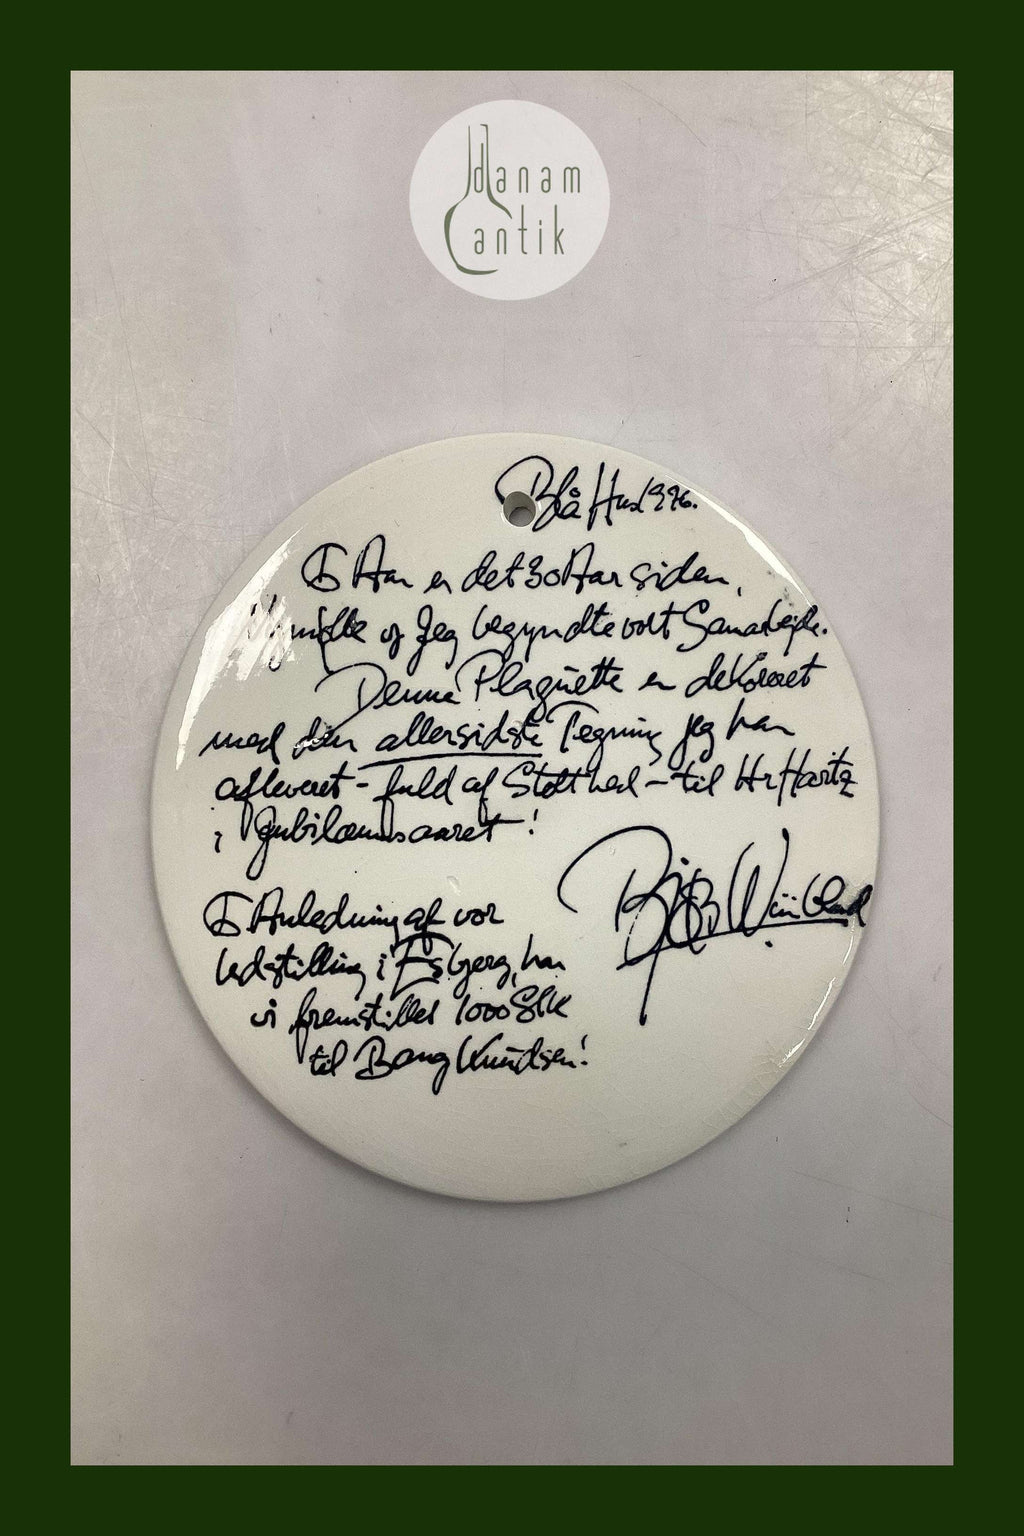 danam
antik
Blå Hus 1996.
I Aar er det 30 Aar siden,
Nymølle og Jeg begyndte vort Samarbejde.
Denne Plaquette er dekoreret
med den allersidste Tegning jeg har
afleveret - fuld af Stolthed - til Hr Hartz
i Jubilæumsaaret!
Bjørn Wiinblad
I Anledning af vor
Udstilling i Esbjerg, har
vi fremstillet 1000 Stk
til Bang Knudsen!